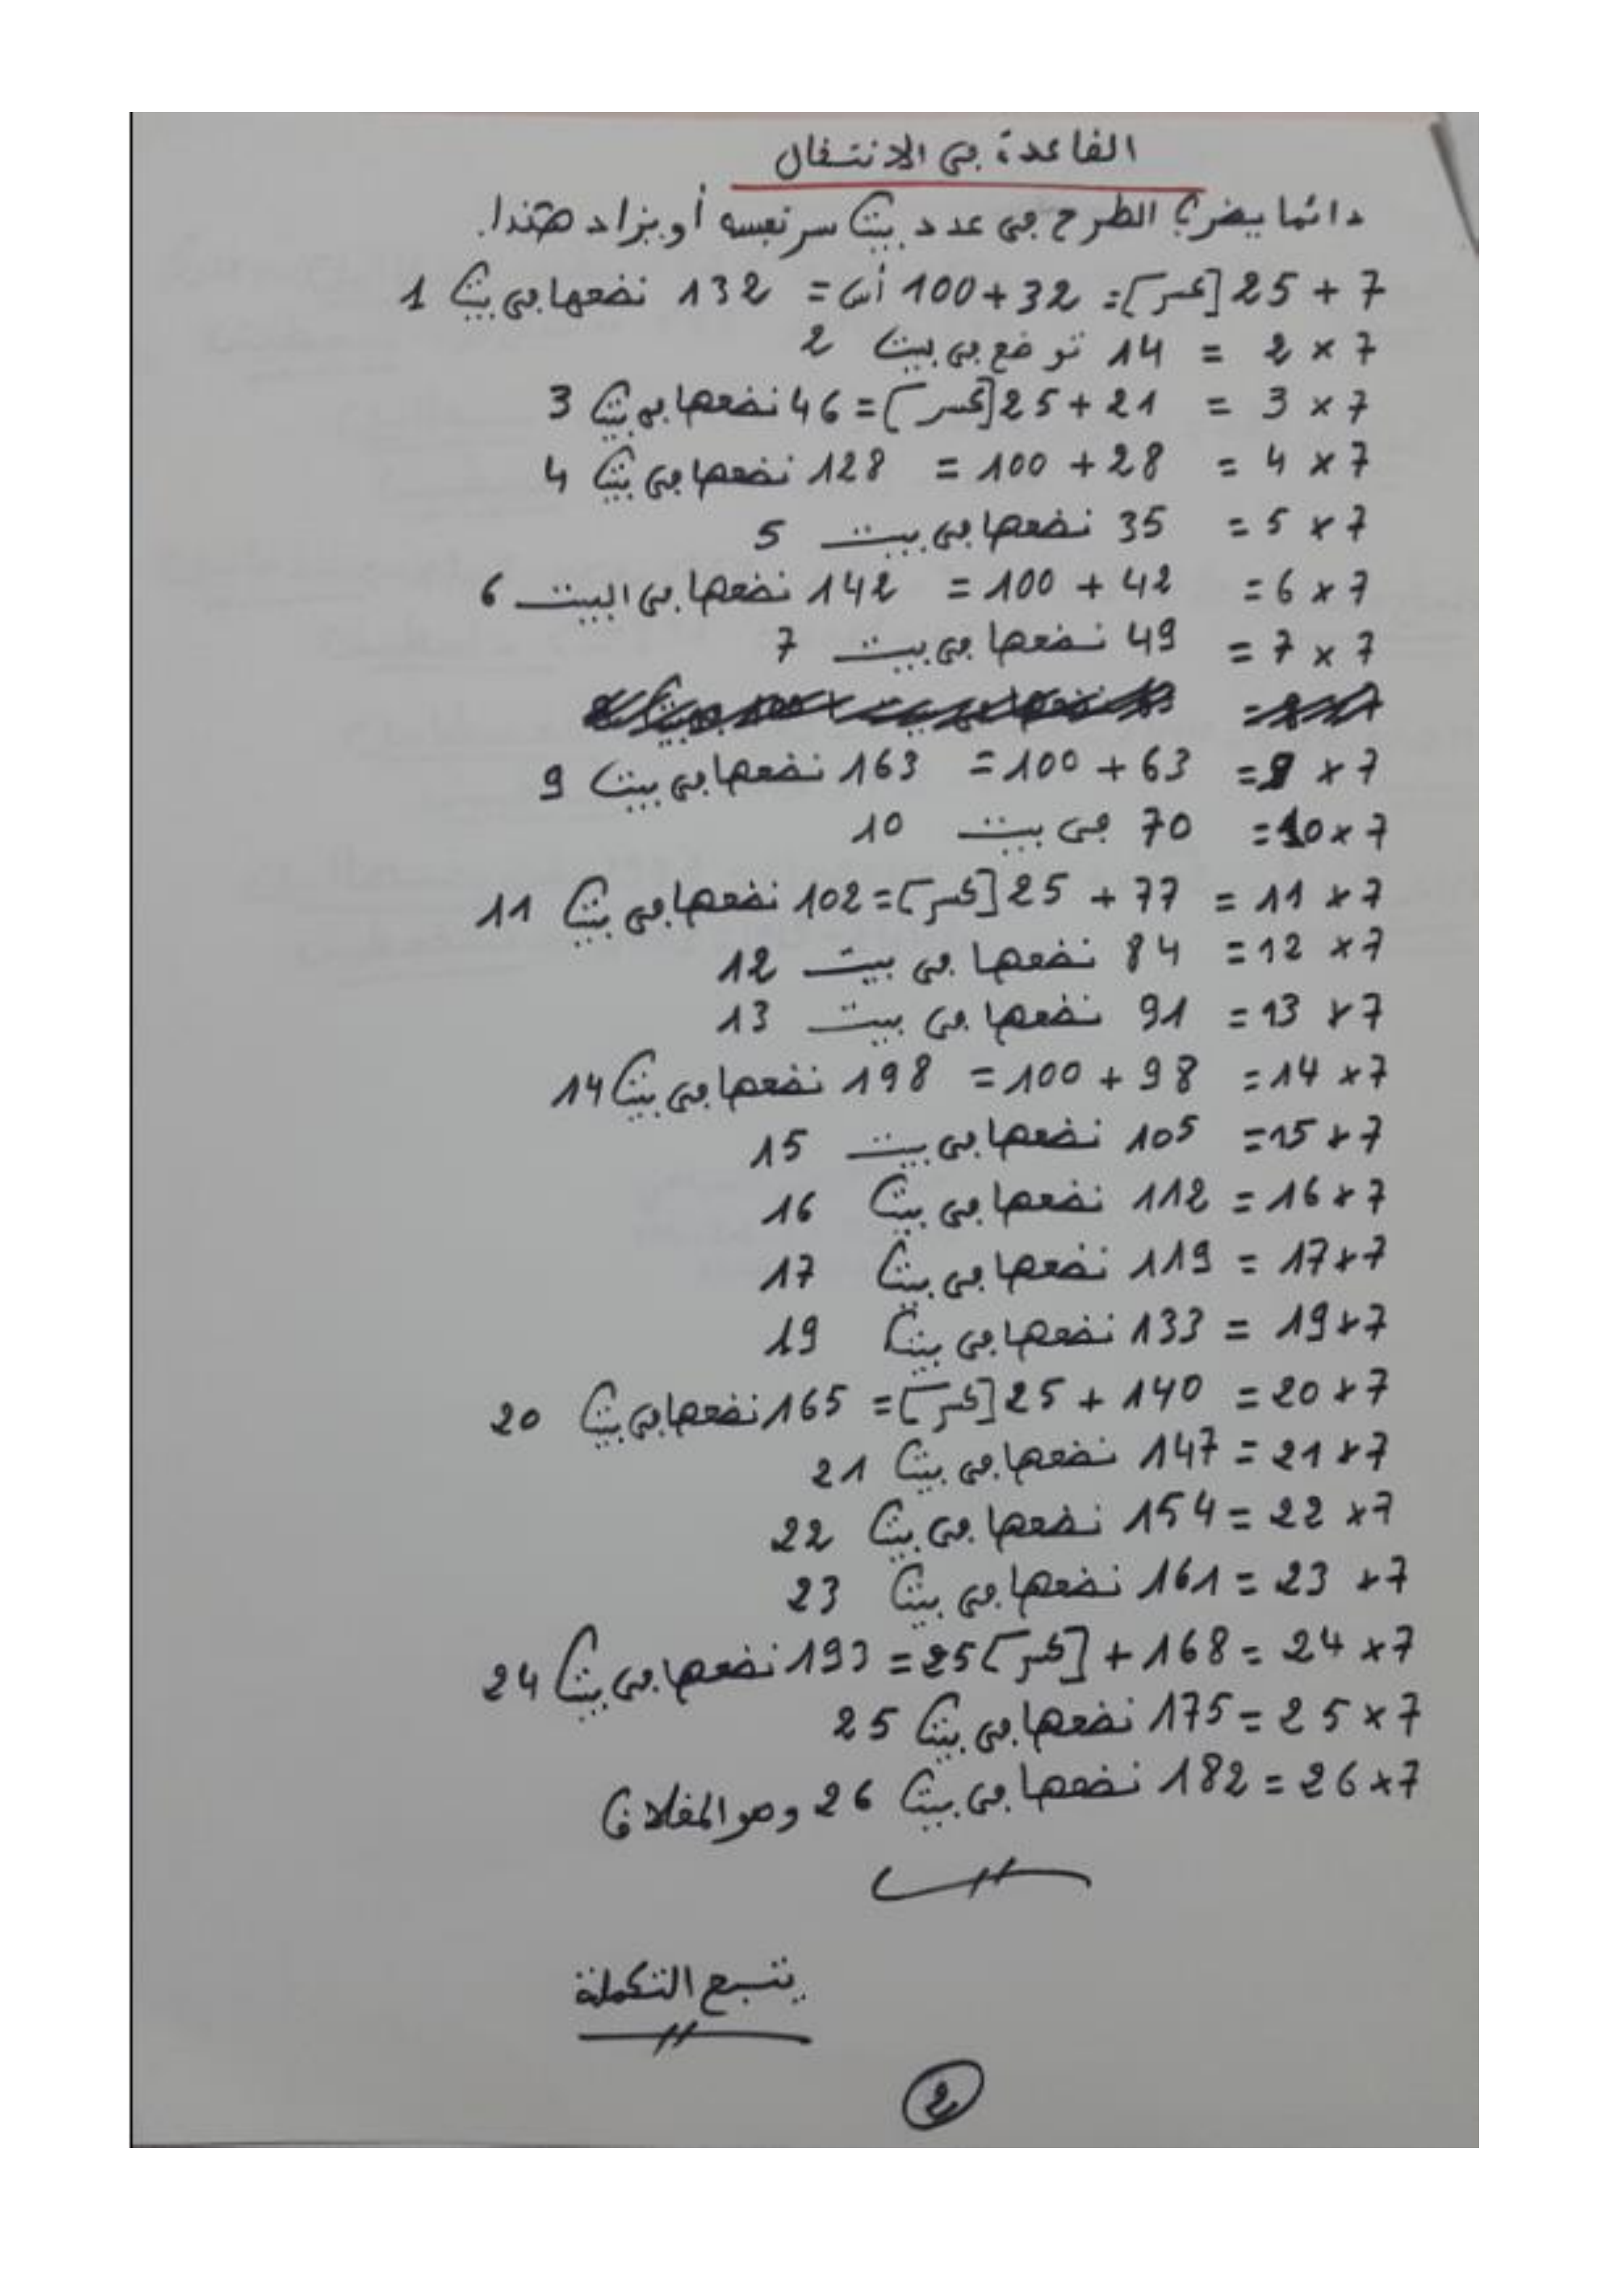 القاعدة في الانتقال
دائما يضرب الطرح في عدد بيت سر نفسه أو يزاد هكذا.
7 + 25 [كسر] = 32 + 100 أس = 132 نضعها في بيت 1
7 × 2 = 14 توضع في بيت 2
7 × 3 = 21 + 25 [كسر] = 46 نضعها في بيت 3
7 × 4 = 28 + 100 = 128 نضعها في بيت 4
7 × 5 = 35 نضعها في بيت 5
7 × 6 = 42 + 100 = 142 نضعها في البيت 6
7 × 7 = 49 نضعها في بيت 7
7 × 9 = 63 + 100 = 163 نضعها في بيت 9
7 × 10 = 70 في بيت 10
7 × 11 = 77 + 25 [كسر] = 102 نضعها في بيت 11
7 × 12 = 84 نضعها في بيت 12
7 × 13 = 91 نضعها في بيت 13
7 × 14 = 98 + 100 = 198 نضعها في بيت 14
7 × 15 = 105 نضعها في بيت 15
7 × 16 = 112 نضعها في بيت 16
7 × 17 = 119 نضعها في بيت 17
7 × 19 = 133 نضعها في بيت 19
7 × 20 = 140 + 25 [كسر] = 165 نضعها في بيت 20
7 × 21 = 147 نضعها في بيت 21
7 × 22 = 154 نضعها في بيت 22
7 × 23 = 161 نضعها في بيت 23
7 × 24 = 168 + [كسر] 25 = 193 نضعها في بيت 24
7 × 25 = 175 نضعها في بيت 25
7 × 26 = 182 نضعها في بيت 26 وهو المغلاق
يتبع التكملة
2